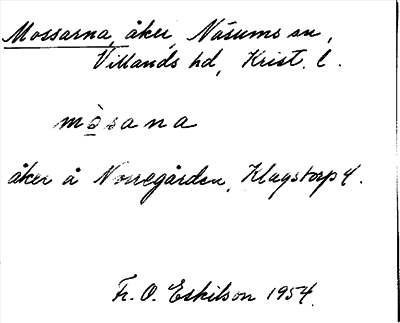 Mossarna, åker, Näsums sn,
Villands hd, Krist. l.
mo̱̊̀sana
åker å Norregården, Klagstorp 4.
Fr. O. Eskilson 1954.